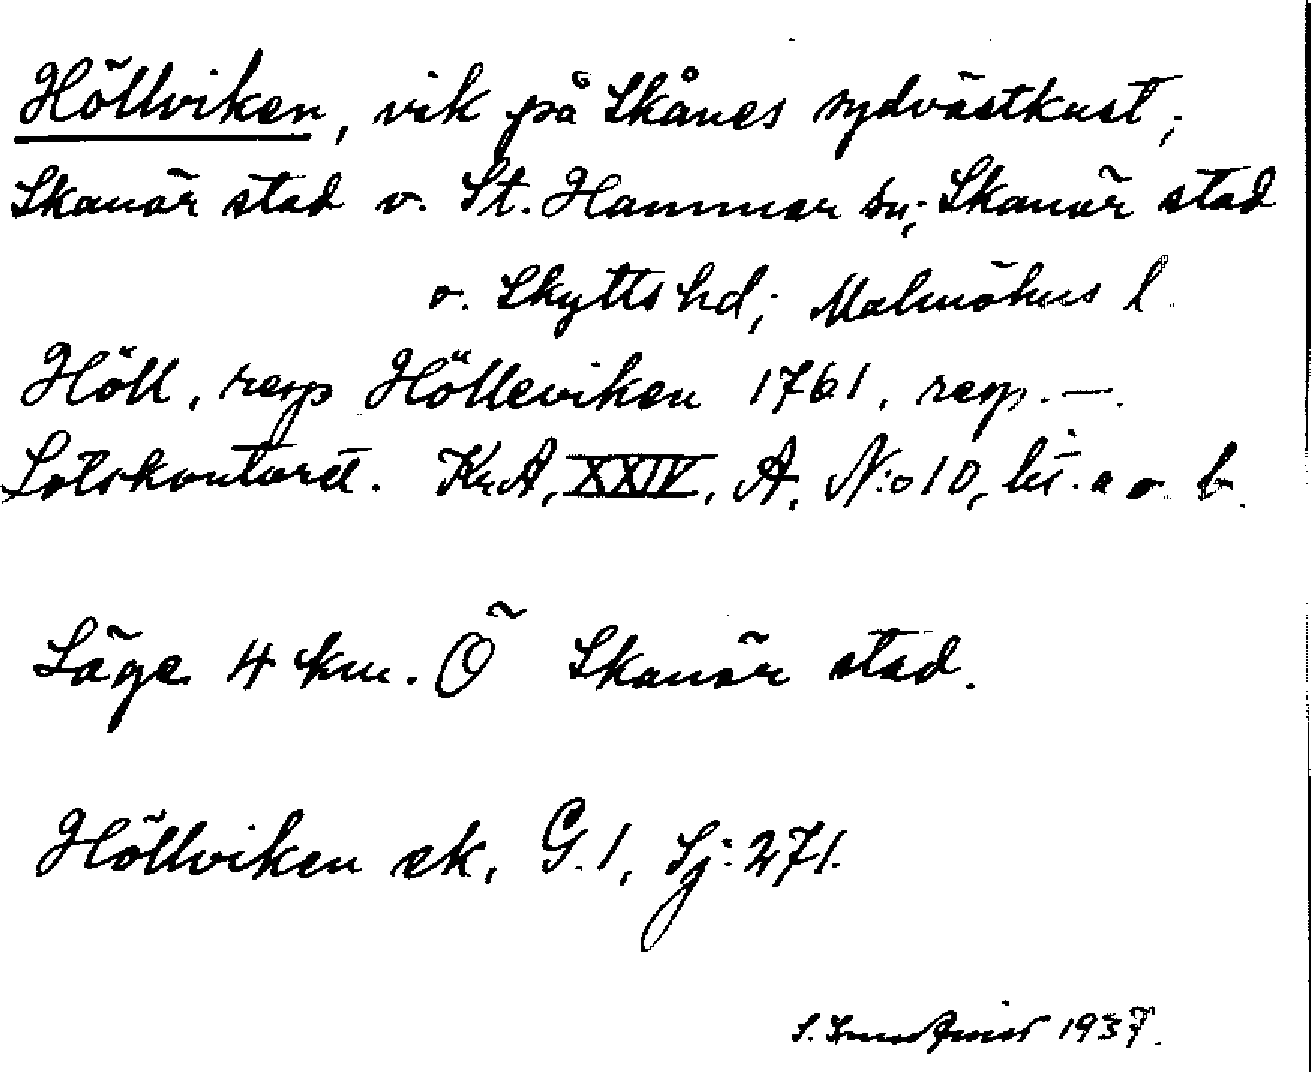 Höllviken, vik på Skånes sydvästkust;
Skanör stad o. St. Hammar sn; Skanör stad
o. Skytts hd; Malmöhus l.
Höll, resp Hölleviken 1761, resp. —.
Lotskontoret. Kr.A, XXIV, A, N:o 10, lit. a o. b.
Läge 4 km. Ö Skanör stad.
Höllviken ek, G. 1, Sj: 271.
S. 1937.